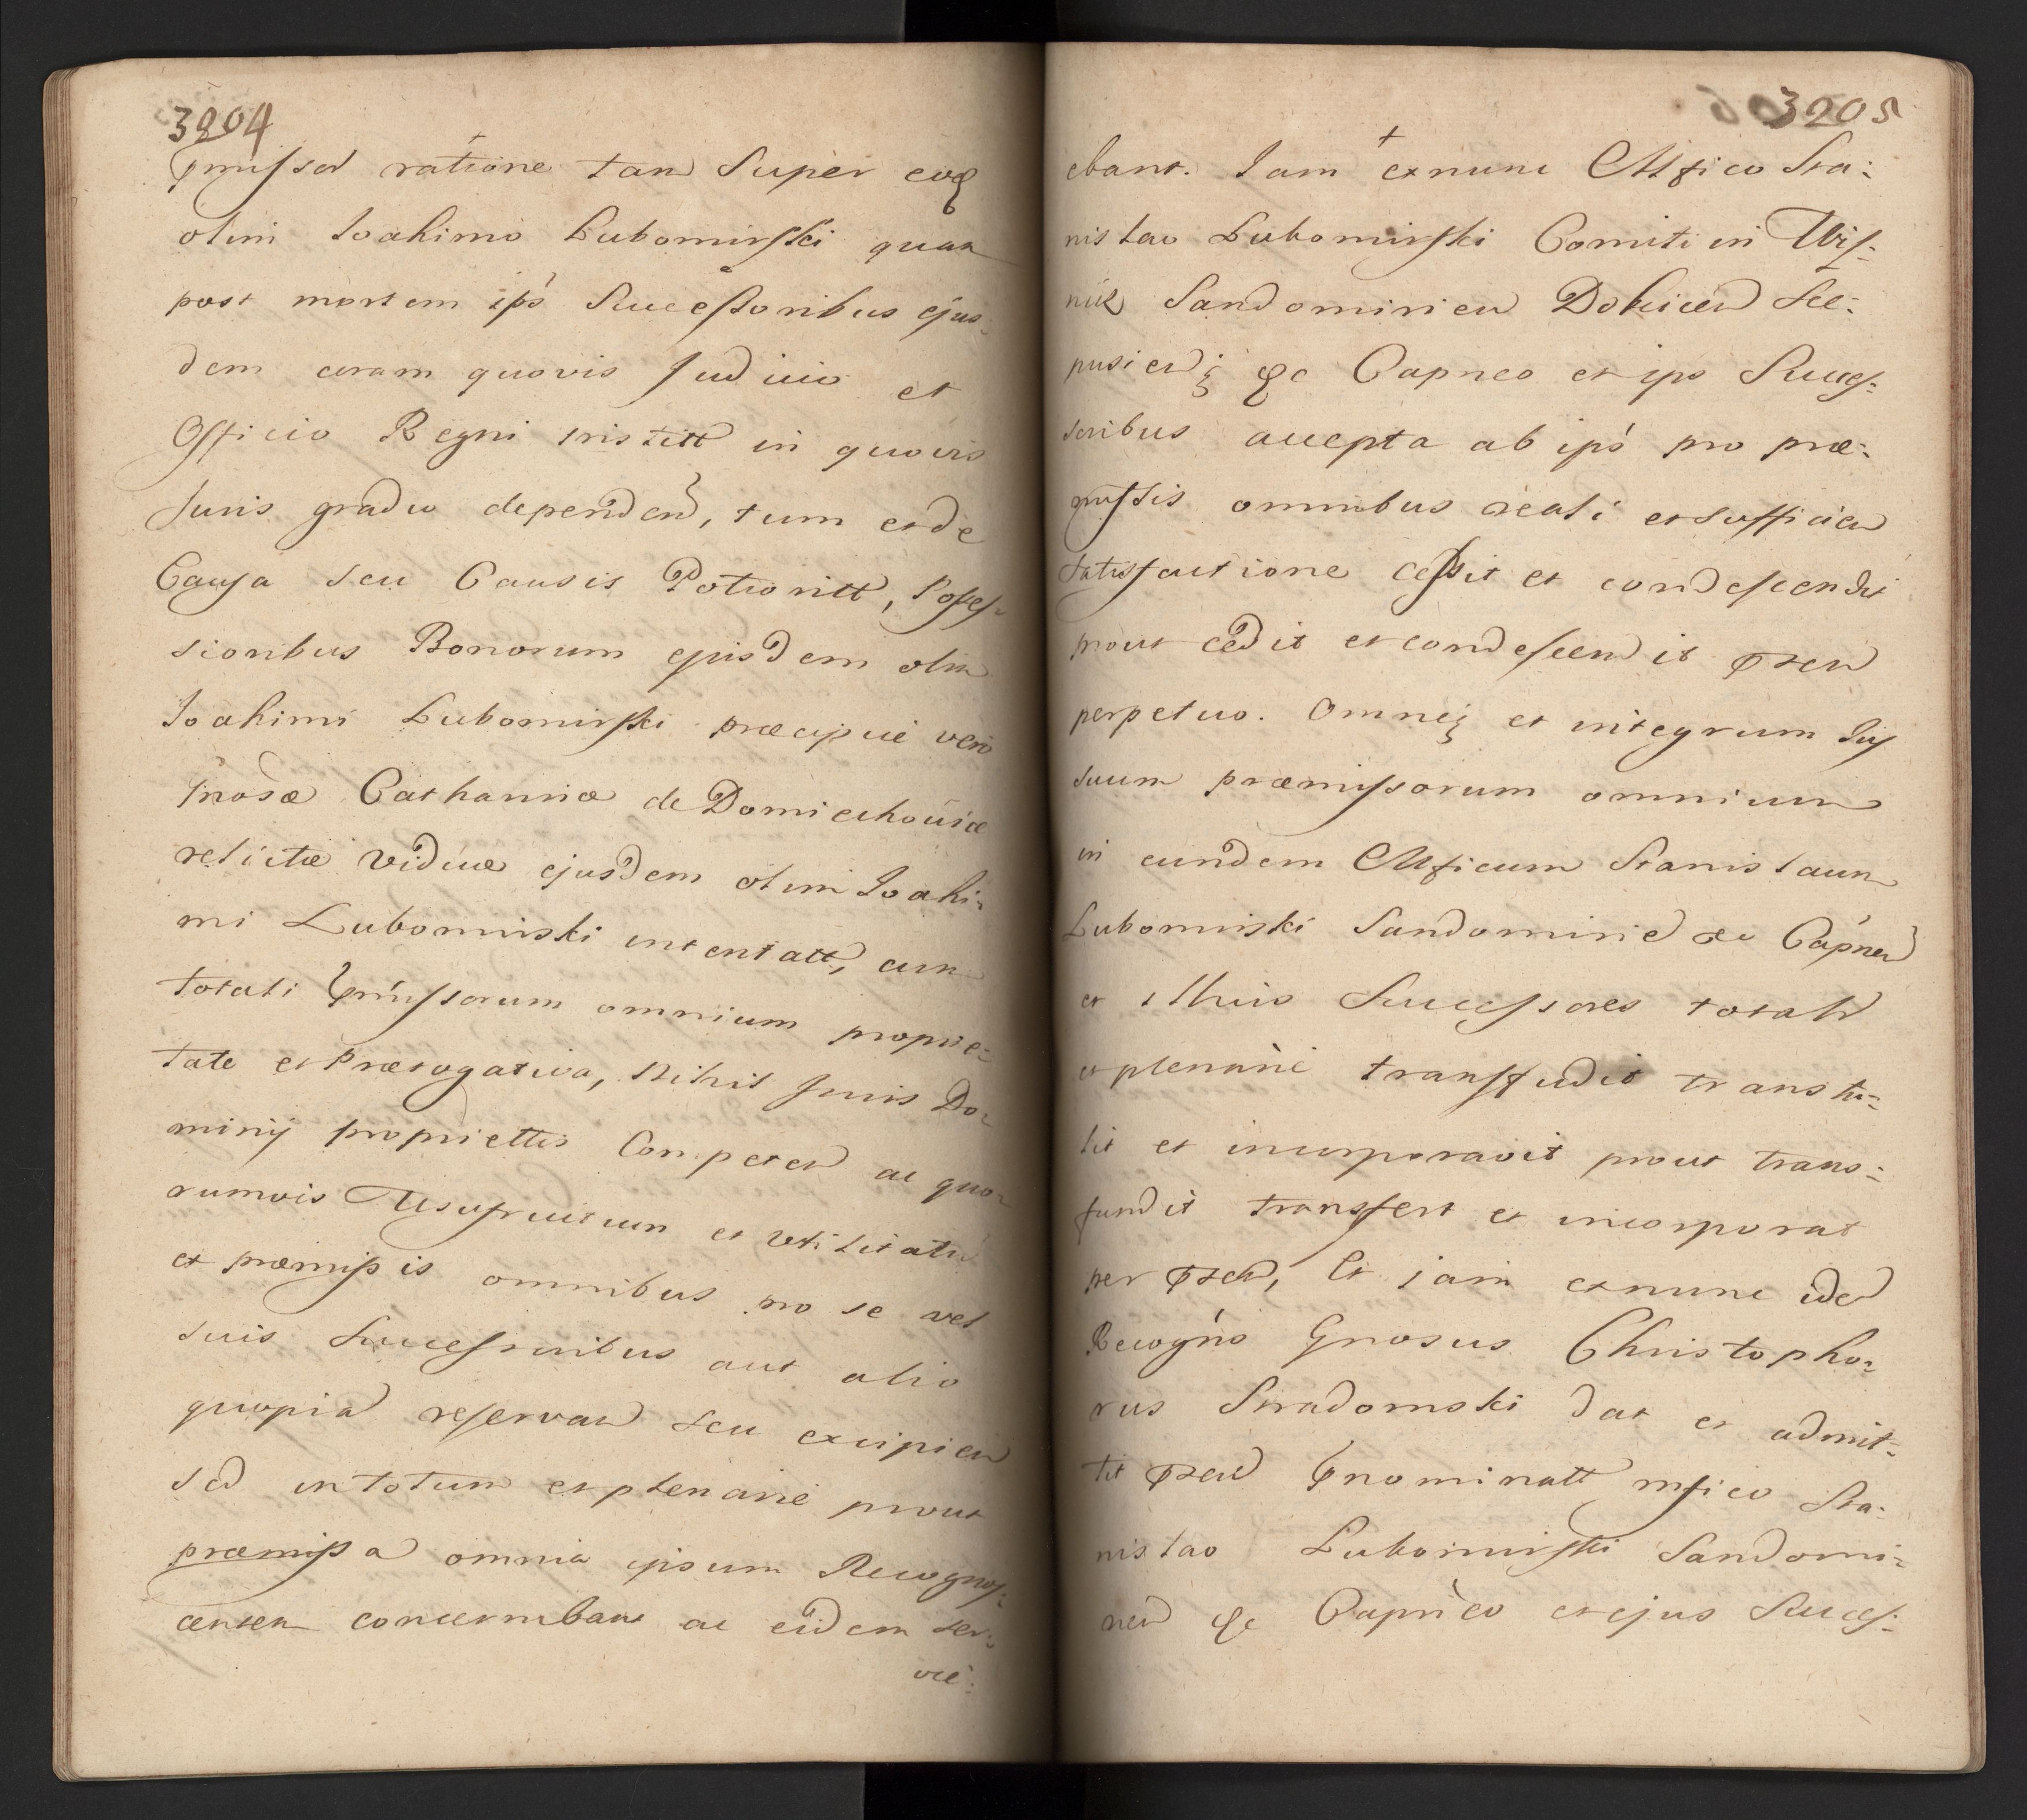 3204
pmissor ratione tam Super eoq
olim Joahimo Lubomirski quam
post mortem ips Successoribus ejus-
dem coram quovis Judicio et
Officio Regni tris titt in quovis
Juris gradu dependen, tum et de
Causa seu Causis Potioritt, Posses-
sionibus Bonorum ejusdem olim
Joahimi Lubomirski præcipue vero
Gnosæ Catharinæ de Domiechoviæ
relictæ viduæ ejusdem olim Joahi-
mi Lubomirski intentatt, cum
totali pmissorum omnium proprie-
tate et Prærogativa, Nihil Juris Do-
minij propriettis Competen ac quo-
rumvis Usufructuum et utilitatu
et præmissis omnibus pro se vel
suis Successoribus aut alio
quopia reservan seu excipien
sed in totum et plenarie prout
præmissa omnia ipsum Recognos-
centem concernebant ac eidem ser-
vie:
3205
ebant. Jam exnunc Mfico Sta-
nislao Lubomirski Comiti in Wis-
nicz Sandomirien Dobicen Sce-
pusien q &c Capneo et ips Succes-
soribus accepta ab ips pro præ-
missis omnibus reali et sufficien
satisfactione cessit et condescendit
prout cedit et condescendit pzen
perpetuo. Omneq et integrum Jus
suum præmissorum omnium
in eundem Mficum Stanislaum
Lubomirski Sandomirien &c Capneu
et illius Successores totalr
et plenarie transfudit transtu-
lit et incorporavit prout trans-
fundit transfert et incorporat
per pzen, Et jam exnunc iden
Recogns Gnosus Christopho-
rus Stradomski dat et admit-
tit pzen pnominatt mfico Sta-
nislao Lubomirski Sandomi-
rien &c Capneo et ejus Succes-